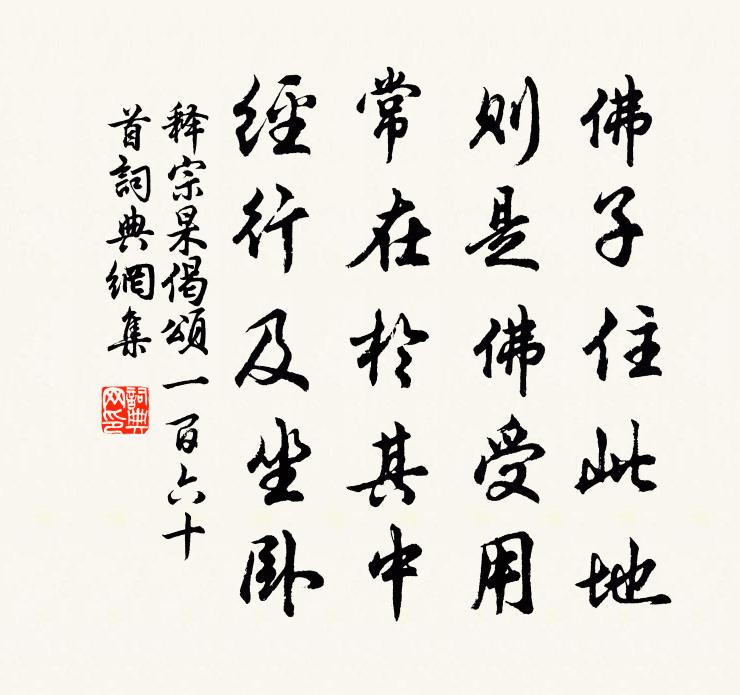 佛子住此地
則是佛受用
常在於其中
經行及坐臥
释宗杲偈頌一百六十
首詞典網集
詞典网印